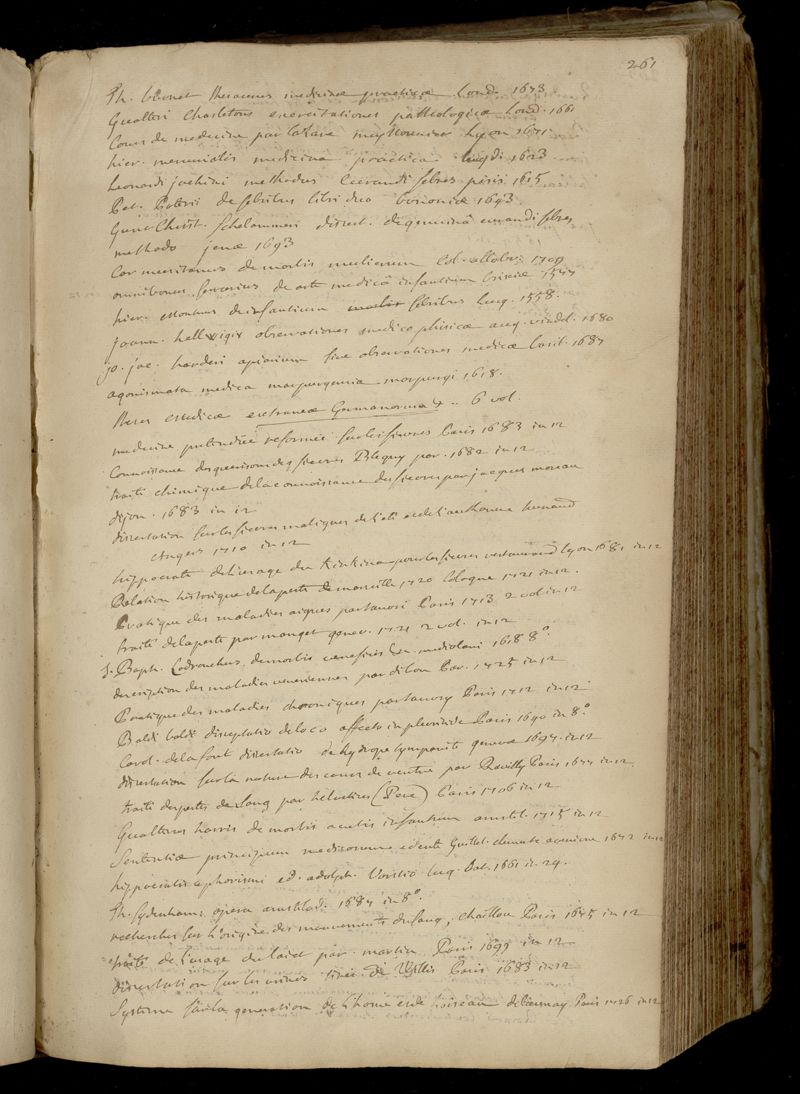 261
Th. bonet thesaurus medicinæ practicæ Lond. 1673
Gualteri Charletons exercitationes pathologicæ Lond. 1661
Cours de medecine par Lazare meyssonnier Lyon 1671.
hier. mercurialis medicina practica Lugdi 1623
Leonardi jachini methodus curandi febres pisis 1615
Pet. Poterii de febribus libri duo bononiæ 1643
Gunt. Christ. Schelammeri dissert. de genuinâ curandi febres
methodo jenæ 1693
de morbis mulierum Col. allobr. 1709
omnibonus ferrarius de arte medicâ infantium brixiæ 1577
hier. infantium febribus Lug. 1558.
joann. hellwigii observationes medico phisicæ aug. vindel. 1680
jo. jac. harderi apiarium sive observationes medicæ basil. 1687
agonismata medica marpurgensia marpurgi 1618.
theses medicæ extraneæ Germanorum .. 6 vol.
medecine pretendüe reformée sur les fievres Paris 1683 in 12
Connoissance des fievres Blegny par. 1682 in 12
traité chimique de la connoissance des fievres par jacques moreau
dijon. 1683 in 12
dissertation sur les fievres malignes de l'été et de l'authomne hunauld
Angers 1710 in 12
hippocrate de l'usage du Kinkina pour les fievres restaurand Lyon 1681 in 12
Relation historique de la peste de marseille 1720 Cologne 1721 in 12.
Pratique des maladies aigues par tauvri Paris 1713 2 vol in 12
traité de la peste par manget genev. 1721 2 vol. in 12
J. Baph. Codronchus, de morbis veneficis &c. mediolani 1618 8°.
description des maladies veneriennes par dibon Par. 1725 in 12
Pratique des maladies chroniques par tauvry Paris 1712 in 12
Baldi baldi disceptatio de loco affecto in pleuritide Paris 1640 in 8.°
Carol. de la font dissertatio de hydrope tympanite genevæ 1697. in 12
dissertation sur la nature des cours de ventre par Rouilly Paris 1677 in 12
traité des pertes de sang par helvetius (Pere) Paris 1706 in 12
Gualterus harris de morbis acutis infantium amstel. 1715 in 12
Sententiæ principium medicorum edente Guilel. 1672 in 12
hippocratis aphorismi ed. adolph. Vorstio Lug. Bat. 1661 in 24.
Th. Sydenhami opera amstelod. 1687 in 8°.
recherches sur l'origine des mouvements du sang, Chaillou Paris 1675 in 12
traité de l'usage du lait par. martin Paris 1699 in 12
dissertation sur les urines tirée de Willis Paris 1683 in 12
Systeme sur la generation de l'home et de l'oiseau de Launay. Paris 1726 in 12